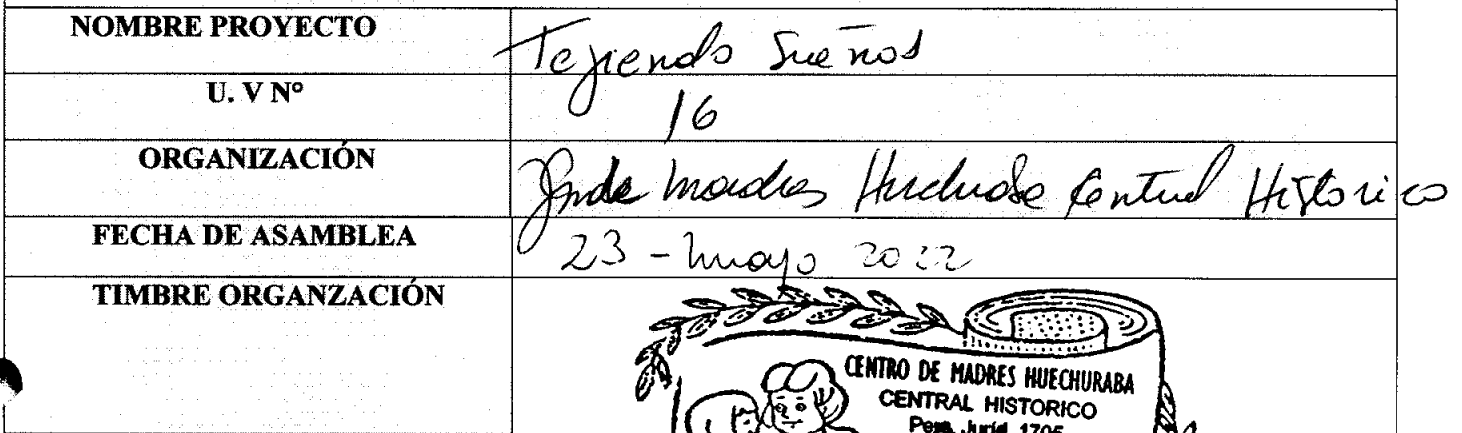 NOMBRE PROYECTO Tejiendo Sueños
U. V Nº 16
ORGANIZACIÓN madres Central Historico
FECHA DE ASAMBLEA 23 - mayo 2022
TIMBRE ORGANZACIÓN
CENTRO DE MADRES HUECHURABA
CENTRAL HISTORICO
Pers. Juríd. 1705